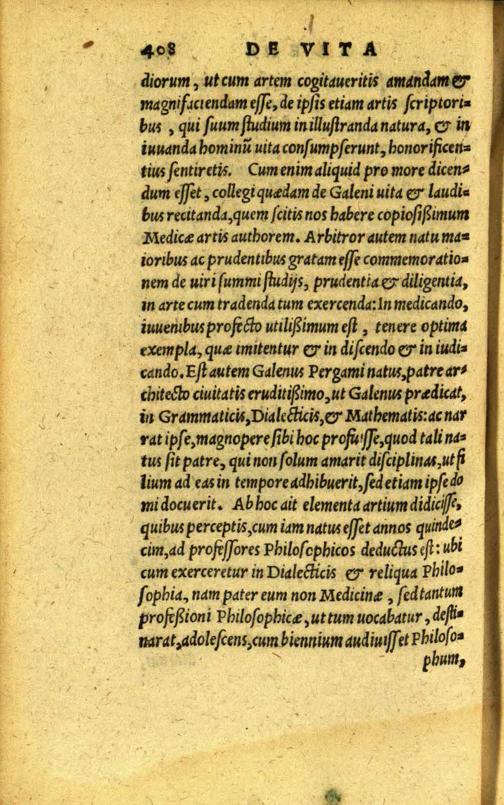 408 DE VITA
diorum, ut cum artem cogitaueritis amandam &
magnifaciendam esse, de ipsis etiam artis scriptori=
bus, qui suum studium in illustranda natura, & in
iuuanda hominũ uita consumpserunt, honorificen=
tius sentiretis. Cum enim aliquid pro more dicen=
dum esset, collegi quædam de Galeni uita & laudi=
bus recitanda, quem scitis nos habere copiosißimum
Medicæ artis authorem. Arbitror autem natu ma=
ioribus ac prudentibus gratam esse commemoratio=
nem de uiri summi studijs, prudentia & diligentia,
in arte cum tradenda tum exercenda: In medicando,
iuuenibus profecto utilißimum est, tenere optima
exempla, quæ imitentur & in discendo & in iudi=
cando. Est autem Galenus Pergami natus, patre ar=
chitecto ciuitatis eruditißimo, ut Galenus prædicat,
in Grammaticis, Dialecticis, & Mathematis: ac nar
rat ipse, magnopere sibi hoc profuisse, quod tali na=
tus sit patre, qui non solum amarit disciplinas, ut fi
lium ad eas in tempore adhibuerit, sed etiam ipse do
mi docuerit. Ab hoc ait elementa artium didicisse,
quibus perceptis, cum iam natus esset annos quinde=
cim, ad professores Philosophicos deductus est: ubi
cum exerceretur in Dialecticis & reliqua Philo=
sophia, nam pater eum non Medicinæ, sed tantum
profeßioni Philosophicæ, ut tum uocabatur, desti=
narat, adolescens, cum biennium audiuisset Philoso=
phum,